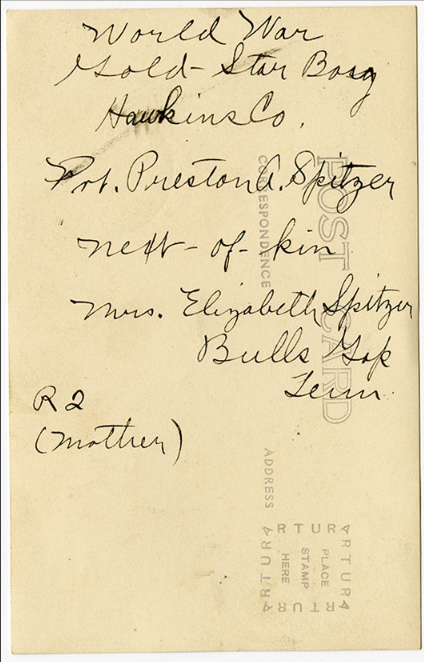 World War
Gold - Star Boys
Hawkins Co.
Pvt. Preston A. Spitzer
next - of - kin
Mrs. Elizabeth Spitzer
Bulls Gap
Tenn.
R 2
(Mother)
POST CARD
CORRESPONDENCE
ADDRESS
ARTURA
ARTURA
ARTURA
ARTURA
PLACE
STAMP
HERE